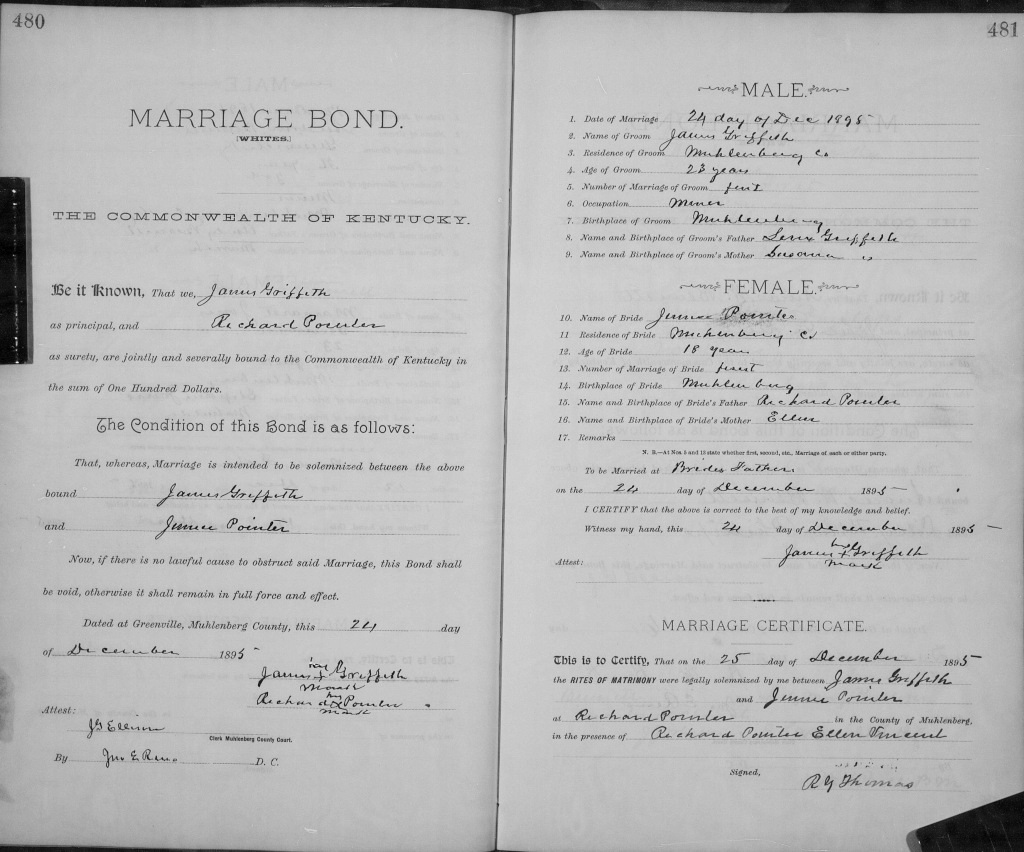 480
MARRIAGE BOND.
[WHITES.]
THE COMMONWEALTH OF KENTUCKY.
Be it Known, That we, James Griffeth
as principal, and Richard Pointer
as surety, are jointly and severally bound to the Commonwealth of Kentucky in
the sum of One Hundred Dollars.
The Condition of this Bond is as follows:
That, whereas, Marriage is intended to be solemnized between the above
bound James Griffeth
and Jennee Pointer
Now, if there is no lawful cause to obstruct said Marriage, this Bond shall
be void, otherwise it shall remain in full force and effect.
Dated at Greenville, Muhlenberg County, this 24 day
of December 1895
his
James X Griffeth
mark
his
Richard X Pointer
mark
Attest:
Clerk Muhlenberg County Court.
By Jno E Reno D. C.
481
MALE.
1. Date of Marriage 24 day of Dec 1895
2. Name of Groom James Griffeth
3. Residence of Groom Muhlenberg Co
4. Age of Groom 23 years
5. Number of Marriage of Groom first
6. Occupation Miner
7. Birthplace of Groom Muhlenberg
8. Name and Birthplace of Groom's Father Griffeth
9. Name and Birthplace of Groom's Mother Susana "
FEMALE.
10. Name of Bride Jennee Pointer
11 Residence of Bride Muhlenberg Co
12. Age of Bride 18 years
13. Number of Marriage of Bride first
14. Birthplace of Bride Muhlenberg
15. Name and Birthplace of Bride's Father Richard Pointer
16. Name and Birthplace of Bride's Mother Ellen
17. Remarks
N. B.—At Nos. 5 and 13 state whether first, second, etc., Marriage of each or either party.
To be Married at Brides Fathers
on the 24 day of December 1895
I CERTIFY that the above is correct to the best of my knowledge and belief.
Witness my hand, this 24 day of December 1895
his
James X Griffeth
mark
Attest:
MARRIAGE CERTIFICATE.
This is to Certify, That on the 25 day of December 1895
the RITES OF MATRIMONY were legally solemnized by me between James Griffeth
and Jennee Pointer
at Richard Pointer in the County of Muhlenberg,
in the presence of Richard Pointer Ellen Vincent
Signed,
R Y Thomas